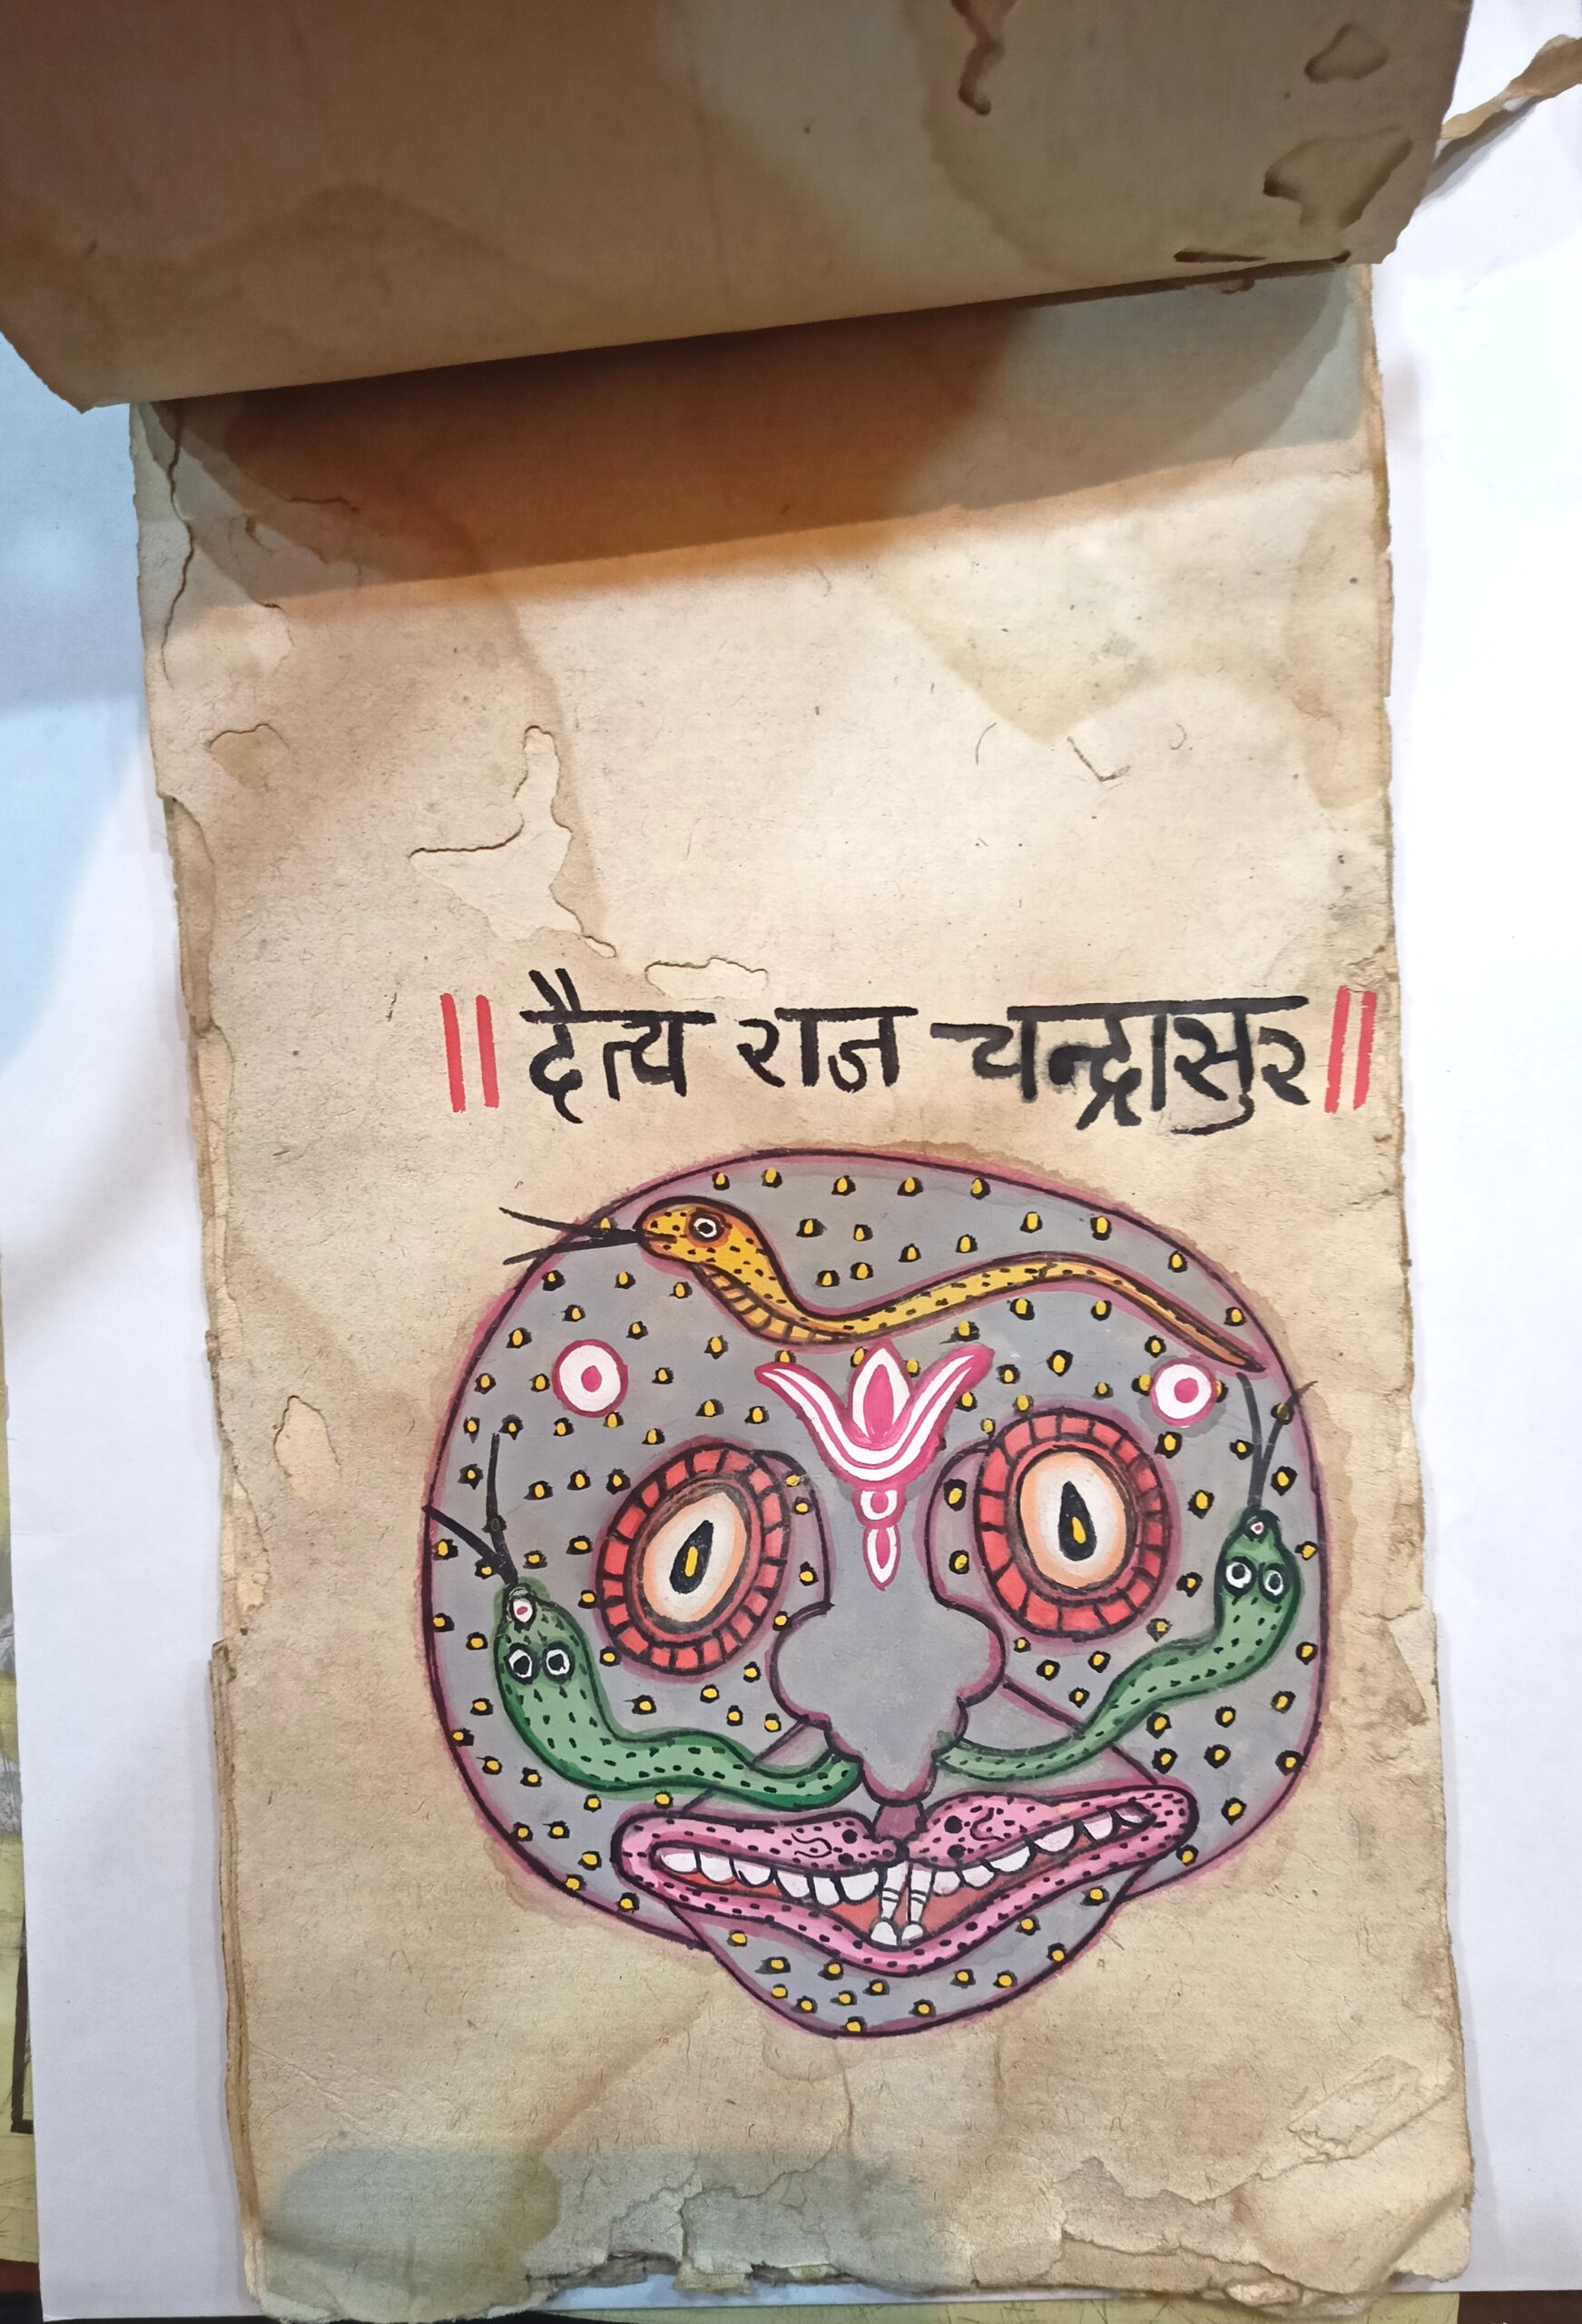 || दैत्य राज चन्द्रासुर ||